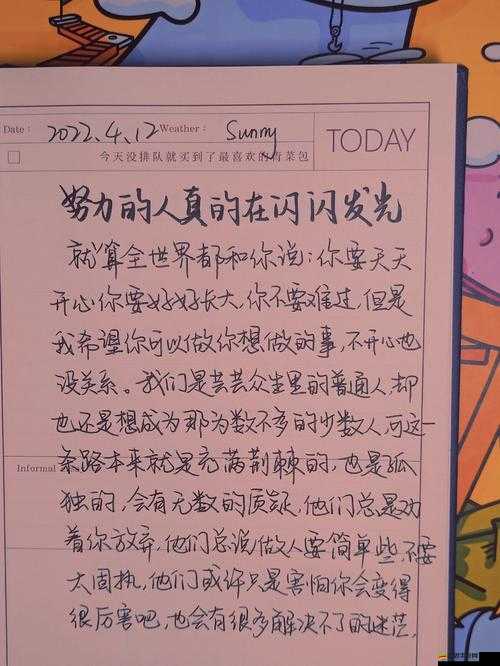 Date: 2022.4.12 Weather: Sunny
TODAY
今天没排队就买到了最喜欢的青菜包
努力的人真的在闪闪发光
就算全世界都和你说：你要天天
开心你要好好长大，你不要难过，但是
我希望你可以做你想做的事，不开心也
没关系。我们是芸芸众生里的普通人，却
也还是想成为那为数不多的少数人，可这一
条路本来就是充满荆棘的，也是孤
Informal
独的，会有无数的质疑，他们总是劝
着你放弃，他们总说做人要简单些，不要
太固执，他们或许只是害怕你会变得
很厉害吧，也会有很多解决不了的迷茫，